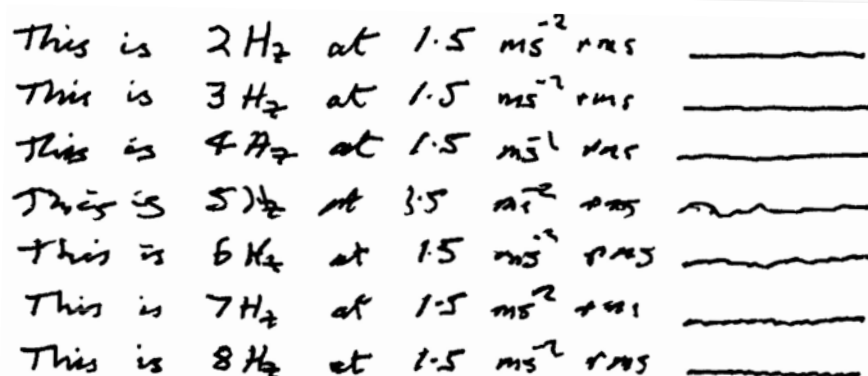 This is 2 Hz at 1.5 ms⁻² rms
This is 3 Hz at 1.5 ms⁻² rms
This is 4 Hz at 1.5 ms⁻² rms
This is 5 Hz at 1.5 ms⁻² rms
This is 6 Hz at 1.5 ms⁻² rms
This is 7 Hz at 1.5 ms⁻² rms
This is 8 Hz at 1.5 ms⁻² rms